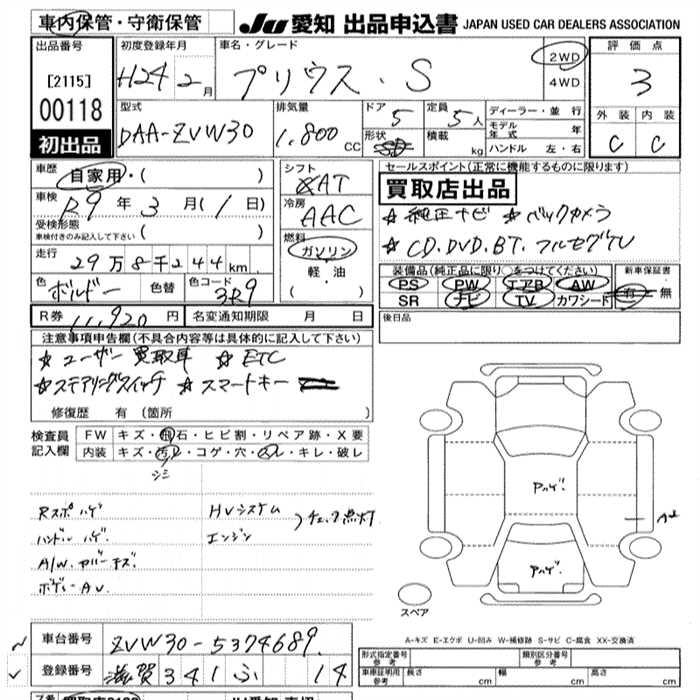 車内保管・守衛保管
JU 愛知 出品申込書 JAPAN USED CAR DEALERS ASSOCIATION
出品番号
[2115]
00118
初出品
初度登録年月
H24 2月
車名・グレード
プリウス・S
2WD
4WD
評価点
3
外装 内装
C C
型式
DAA-ZVW30
排気量
1,800 CC
ドア
5
形状
定員
5人
積載
kg
ディーラー・並行
モデル年式 年
ハンドル 左・右
車歴
自家用・( )
車検
R9年3月(1日)
受検形態
車検付きのみ記入して下さい ( )
走行
29万8千244km
色
ボルドー
色替
色コード
3R9
シフト
AT
冷房
AAC
燃料
ガソリン
軽・油
( ・ )
セールスポイント(正常に機能するものに限ります)
買取店出品
☆純正ナビ ☆バックカメラ
☆CD.DVD.BT.フルセグTV
装備品(純正品に限り○をつけてください)
PS PW エアB AW
SR ナビ TV カワシード
新車保証書
有・無
R券 11,920円
名変通知期限 月 日
後日品
注意事項申告欄(不具合内容等は具体的に記入して下さい)
☆ユーザー買取車 ☆ETC
☆ステアリングスイッチ ☆スマートキー
修復歴 有(箇所 )
検査員記入欄
FW キズ・飛石・ヒビ割・リペア跡・X要
内装 キズ・汚れ・コゲ・穴・スレ・キレ・破レ
シミ
Rスポハゲ
ハンドルハゲ
A/W.カバーキズ
ボデーAU
HVシステム
エンジン
チェック点灯
Aハゲ.
Aハゲ.
スペア
A-キズ E-エクボ U-凹み W-補修跡 S-サビ C-腐食 XX-交換済
車台番号 ZVW30-5374689
登録番号 滋賀 341 ふ 14
形式指定番号 参考
類別区分番号 参考
車庫証明用 参考 長さ cm 幅 cm 高さ cm